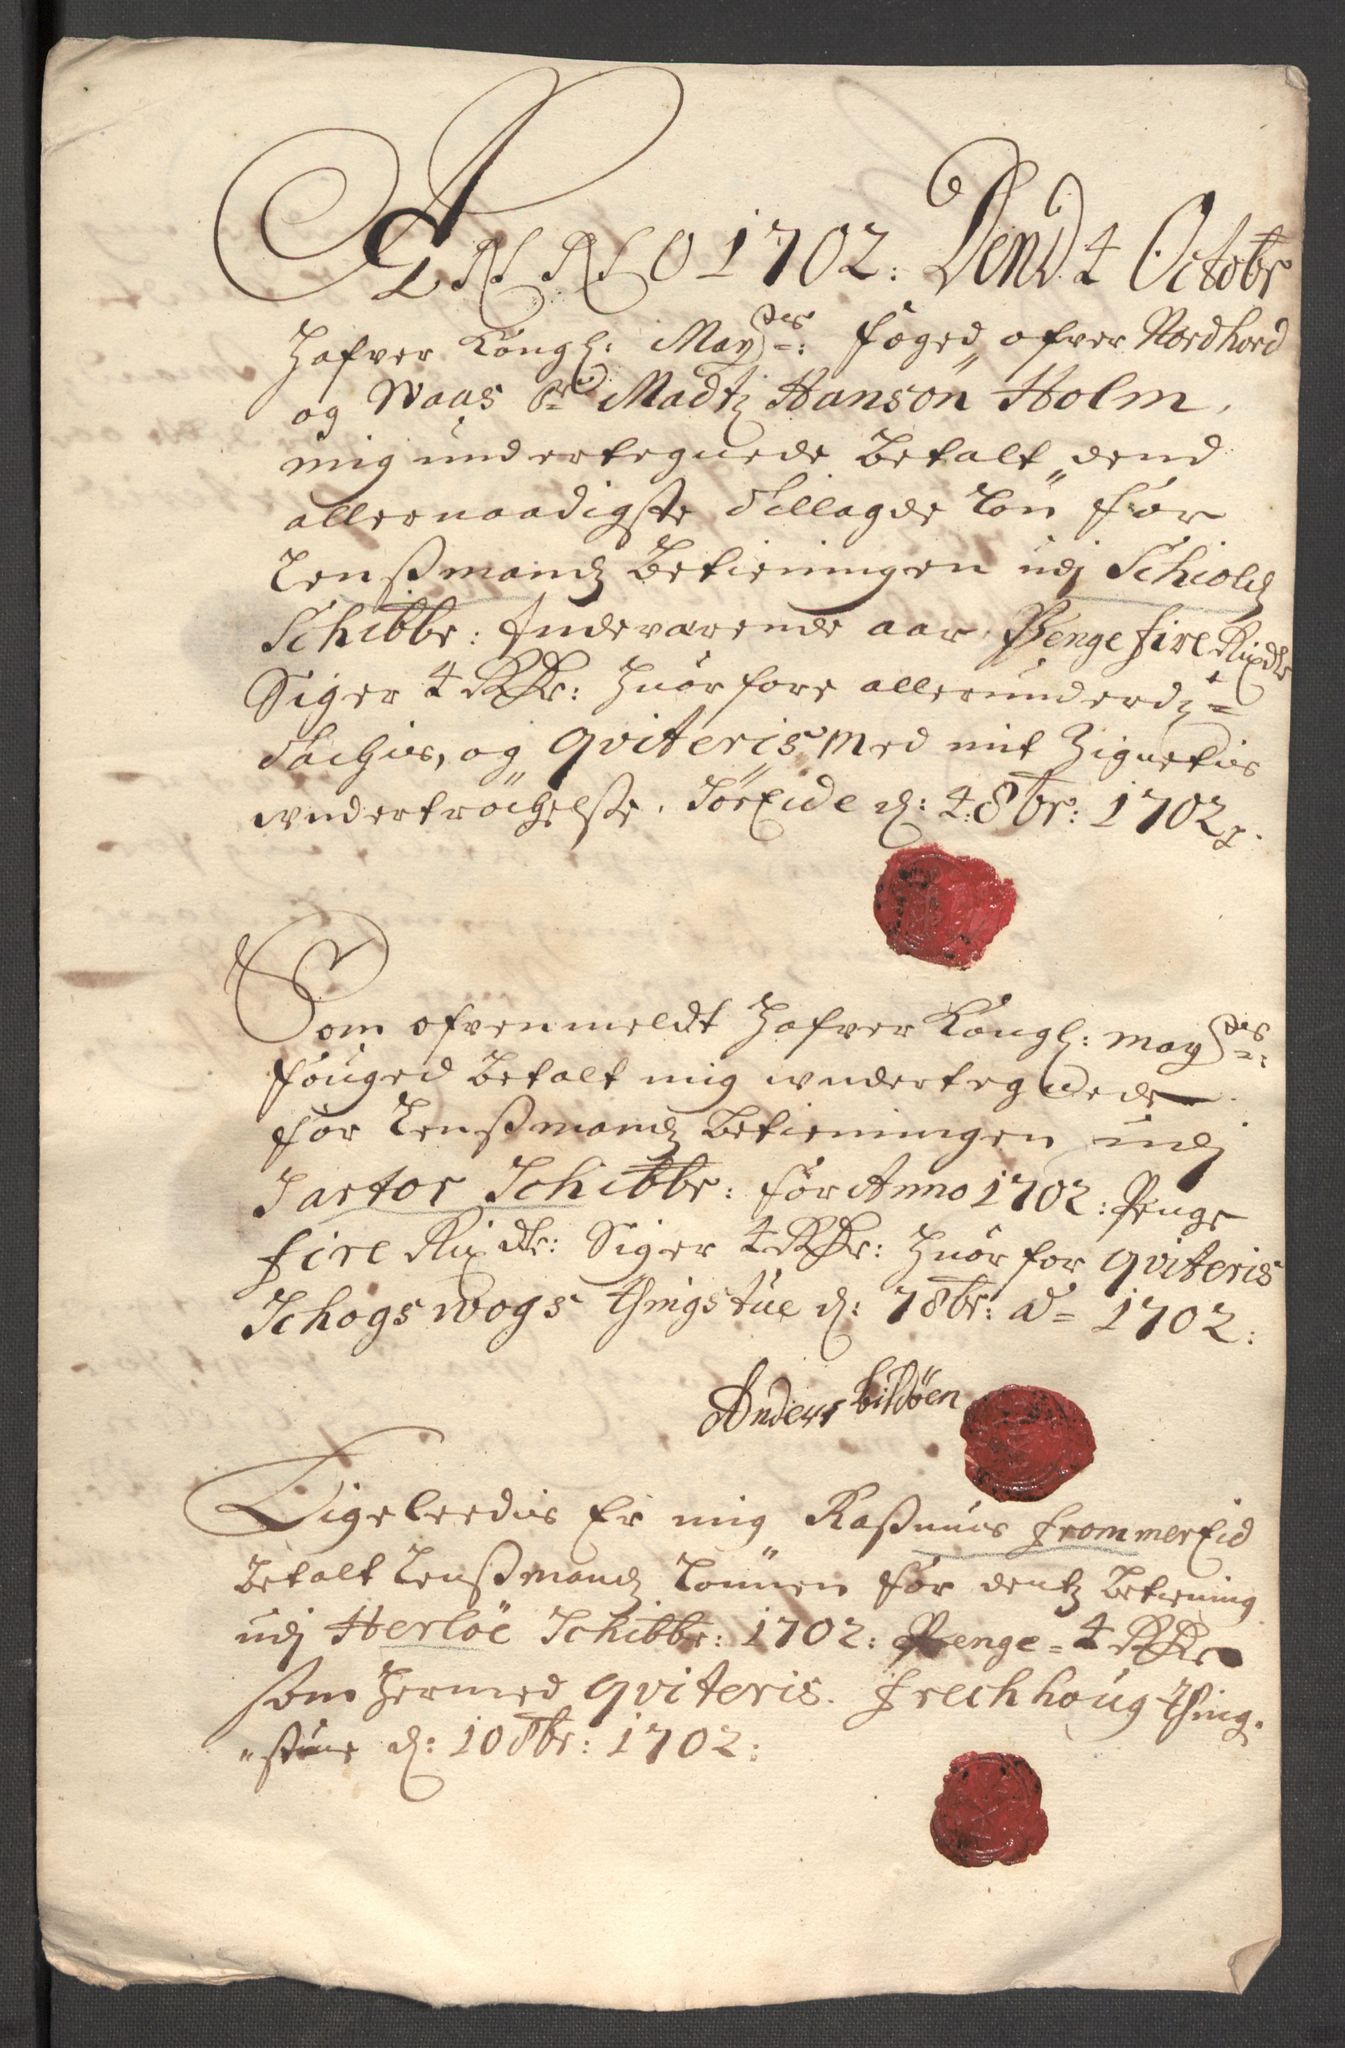 ANNO 1702: Dend 4 Octobr
Hafver Kongl: May^des: foged ofver Nordhord
og Waas Sr Madtz Hansøn Holm,
mig undertegnede Betalt dend
allernaadigste tillagde Løn for
Lenssmandz Betieningen udj Schiold
Schibbr: Indeværende aar, Penge fire Rixdlr
Siger 4 Rdr: Huor fore allerunderdg^t
tachis, og qviteris med mit Zignetis
undertrøchelsse. Tøsseide d: 4: 8br: 1702
Som ofvenmeldt Hafver Kongl: May^des:
fouged Betalt mig undertegnede
for Lenssmandz Betieningen udj
Sartor Schibbr: for Anno 1702: Penge
fire Rixdlr: Siger 4 Rdr: Huor for qviteris
Schogs wogs thingstue d: 7 8br: Ao 1702:
Anders bildøen
Ligeleedis Er mig Rassmus frommereid
Betalt Lenssmandz Lønnen for dentz Betiening
udj Herløe Schibbr: 1702: Penge 4 Rdr
som Hermed qviteris. frechhoug thing-
"stue d: 10 8br: 1702: